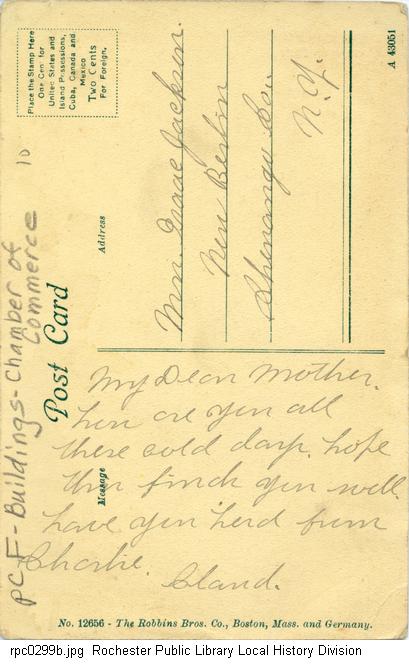 Place the Stamp Here
One Cent for
United States and
Island Possessions,
Cuba, Canada and
Mexico
Two Cents
For Foreign.
A 43051
10
PCF-Buildings-Chamber of
Commerce
Post Card
Address
Message
Mrs. Grace Jackson.
New Berlin
Chenango Co.
N.Y.
My Dear Mother.
how are you all
these cold days. hope
this finds you well.
have you herd from
Charlie.
Claud.
No. 12656 - The Robbins Bros. Co., Boston, Mass. and Germany.
rpc0299b.jpg Rochester Public Library Local History Division